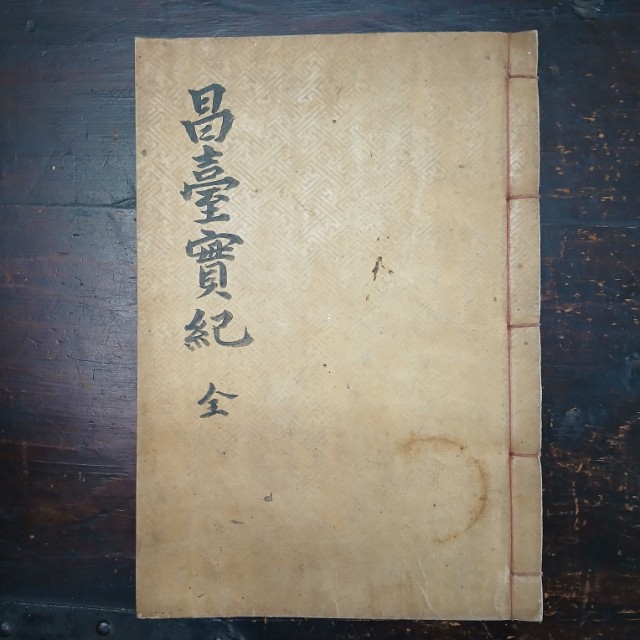 昌臺實紀 全